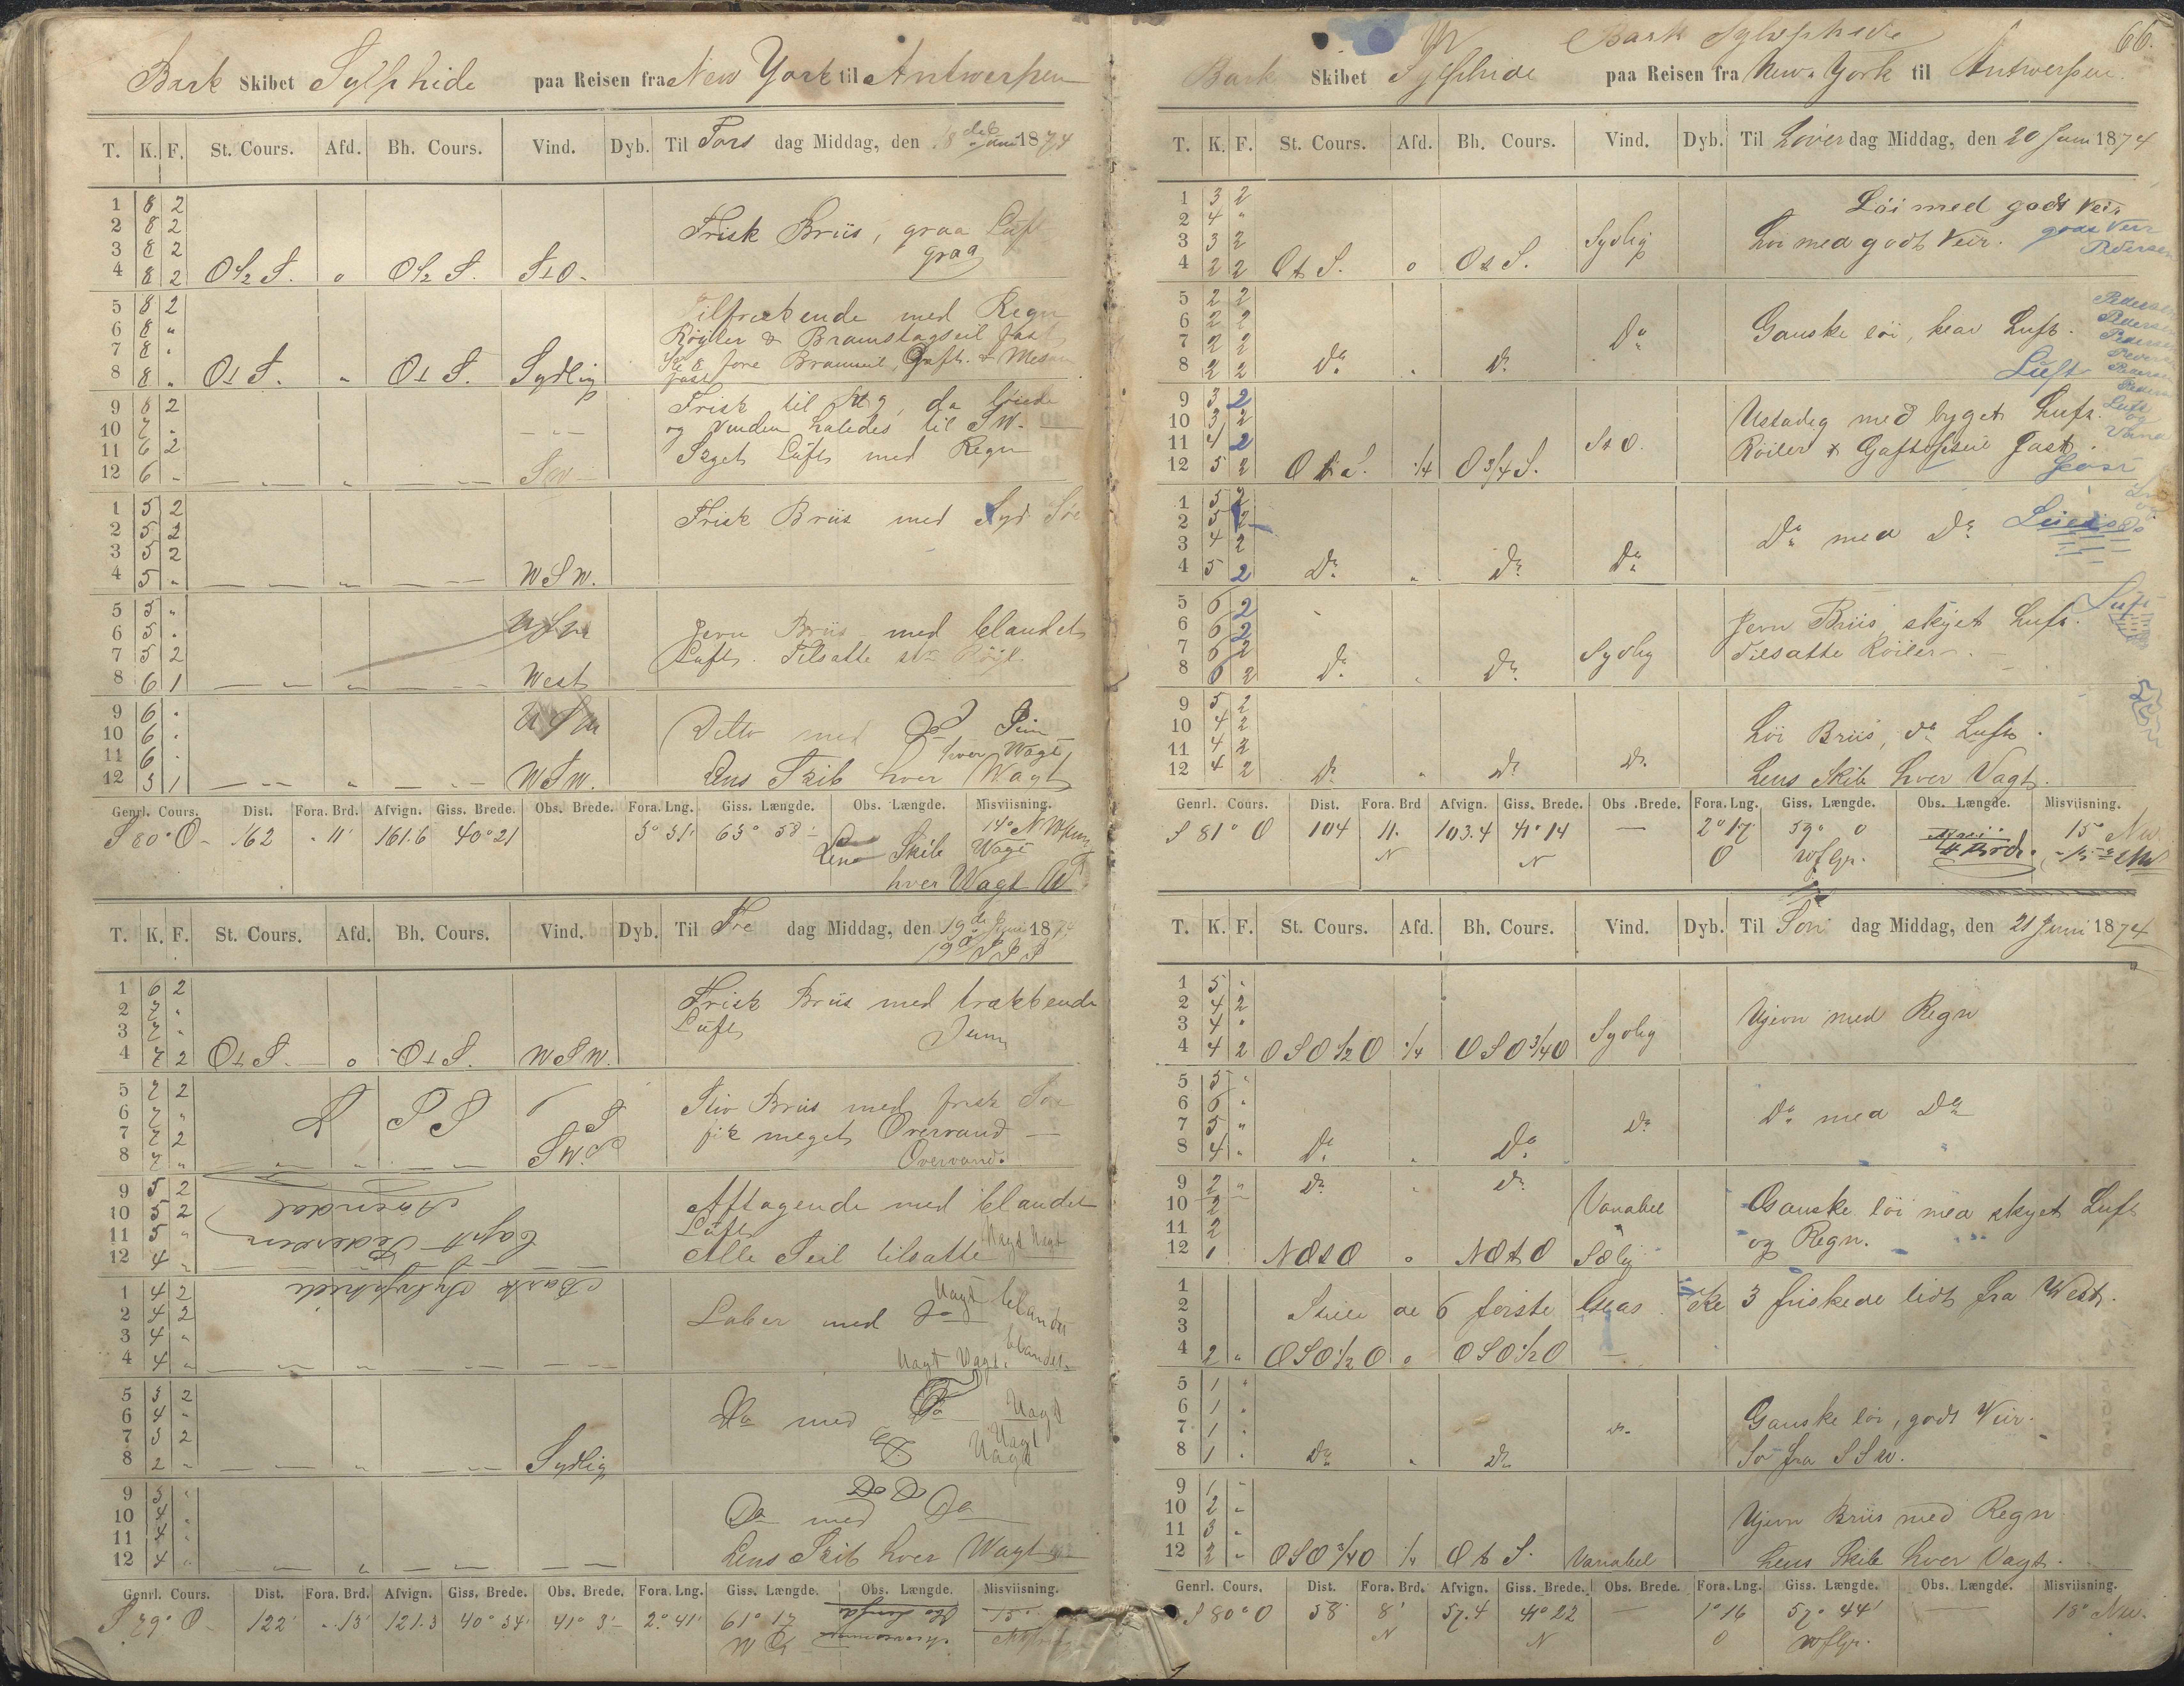 Bark Skibet Sylphide paa Reisen fra New York til Antwerpen
T. K. F. St. Cours. Afd. Bh. Cours. Vind. Dyb. Til Tors dag Middag, den 18de Juni 1874
1 8 2
2 8 2 Frisk Briis, graa Luft
3 8 2 graa
4 8 2 O½S. o O½S. StO.
5 8 2 Tiltrækkende med Regn
6 8 " Røyler & Bramstagseil fast
7 8 " fore Bramseil, Gaft. & Mesan
8 8 " OtS. " OtS. Sydlig fast
9 8 2 Frisk til da løiede
10 7 " og Vinden haledes til SW.
11 6 2 Luft med Regn
12 6 " SW
1 5 2 Frisk Briis med Syd Søe
2 5 2
3 5 2
4 5 " WSW.
5 5 " WSW Jevn Briis med blandet
6 5 " Luft. Tilsatte
7 5 2
8 6 1 West
9 6 " WSW Ditto med Do
10 6 " hver Wagt
11 6 "
12 5 1 WSW. Lens Skib hver Wagt
Genrl. Cours. Dist. Fora. Brd. Afvign. Giss. Brede. Obs. Brede. Fora. Lng. Giss. Længde. Obs. Længde. Misviisning.
S 80° O 162 11' 161.6 40° 21 3° 31' 63° 58' 14° NW
Lens Skib Wagt
hver Wagt
T. K. F. St. Cours. Afd. Bh. Cours. Vind. Dyb. Til Fre dag Middag, den 19de Juni 1874
1 6 2 Frisk Briis med trækkende
2 7 " Luft
3 7 "
4 7 2 OtS. o OtS. WSW.
5 7 2 Stiv Briis med frisk Søe
6 7 " fik meget Overvand
7 7 2 Overvand.
8 7 " SW.
9 5 2 Arendal Aftagende med blandet
10 5 2 Capt Pedersen Luft
11 5 " Alle Seil tilsatte Vagt Vagt
12 4 "
1 4 2 Bark Sylphide
2 4 2 Laber med Do Vagt blandet
3 4 " blandet
4 4 " Vagt Vagt.
5 3 2 Do med Do Vagt
6 4 " Vagt
7 3 2 Vagt
8 2 " Sydlig
9 3 " Do Do
10 4 " Do med Do
11 4 "
12 4 " Lens Skib hver Wagt
Genrl. Cours. Dist. Fora. Brd. Afvign. Giss. Brede. Obs. Brede. Fora. Lng. Giss. Længde. Obs. Længde. Misviisning.
S 79° O 122' 13' 121.3 40° 34' 41° 3' 2° 41' 61° 17 15°
66.
Bark Sylphide
Bark Skibet Sylphide paa Reisen fra New-York til Antwerpen.
T. K. F. St. Cours. Afd. Bh. Cours. Vind. Dyb. Til Løver dag Middag, den 20 Juni 1874
1 3 2 Løi med godt Veir
2 4 " godt Veir
3 3 2 Sydlig Løi med godt Veir. Pedersen
4 2 2 OtS. o OtS.
5 2 2 Pedersen
6 2 2 Ganske løi, klar Luft. Pedersen
7 2 2 Do Pedersen
8 2 2 Do " Do Luft Pedersen
9 3 2 Ustadig med byget Luft. Luft
10 3 2 og
11 4 2 StO. Røiler & Gaftopseil fast. Vand
12 5 2 OtS. ¼ O¾S. fast
1 5 2
2 5 2 Do med Do
3 4 2
4 5 2 Do " Do Do
5 6 2 Jevn Briis, skyet Luft. Luft
6 6 2 Tilsatte Røiler.
7 6 2 Sydlig
8 6 2 Do " Do
9 5 2
10 4 2 Løi Briis, do Luft.
11 4 2
12 4 2 Do " Do Do Lens Skib hver Vagt.
Genrl. Cours. Dist. Fora. Brd Afvign. Giss. Brede. Obs. Brede. Fora. Lng. Giss. Længde. Obs. Længde. Misviisning.
S 81° O 104 11. 103.4 41° 14 — 2° 17 59° 0 15° NW.
N N O WfGr.
T. K. F. St. Cours. Afd. Bh. Cours. Vind. Dyb. Til Søn dag Middag, den 21 Juni 1874
1 5 "
2 4 2 Ujevn med Regn
3 4 "
4 4 2 OSO½O ¼ OSO¾O Sydlig
5 5 "
6 6 " Do med Do
7 5 " Do
8 4 " Do " Do
9 2 " Do " Do
10 2 Variabel Ganske løi med skyet Luft
11 2 og Regn.
12 1 NOtO o NOtO
1
2 Stille de 6 første Glas. Kl 3 friskede lidt fra West.
3
4 2 " OSO½O o OSO½O
5 1 "
6 1 " Ganske løi, godt Veir.
7 1 " Do
8 1 " Do " Do Sø fra SSW.
9 1 "
10 2 " Ujevn Briis med Regn
11 3 "
12 2 " OSO¾O ¼ OtS. Variabel Lens Skib hver Vagt.
Genrl. Cours. Dist. Fora. Brd. Afvign. Giss. Brede. Obs. Brede. Fora. Lng. Giss. Længde. Obs. Længde. Misviisning.
S 80° O 58' 8' 57.4 41° 22 — 1° 16 57° 44' — 18° NW.
N N O WfGr.